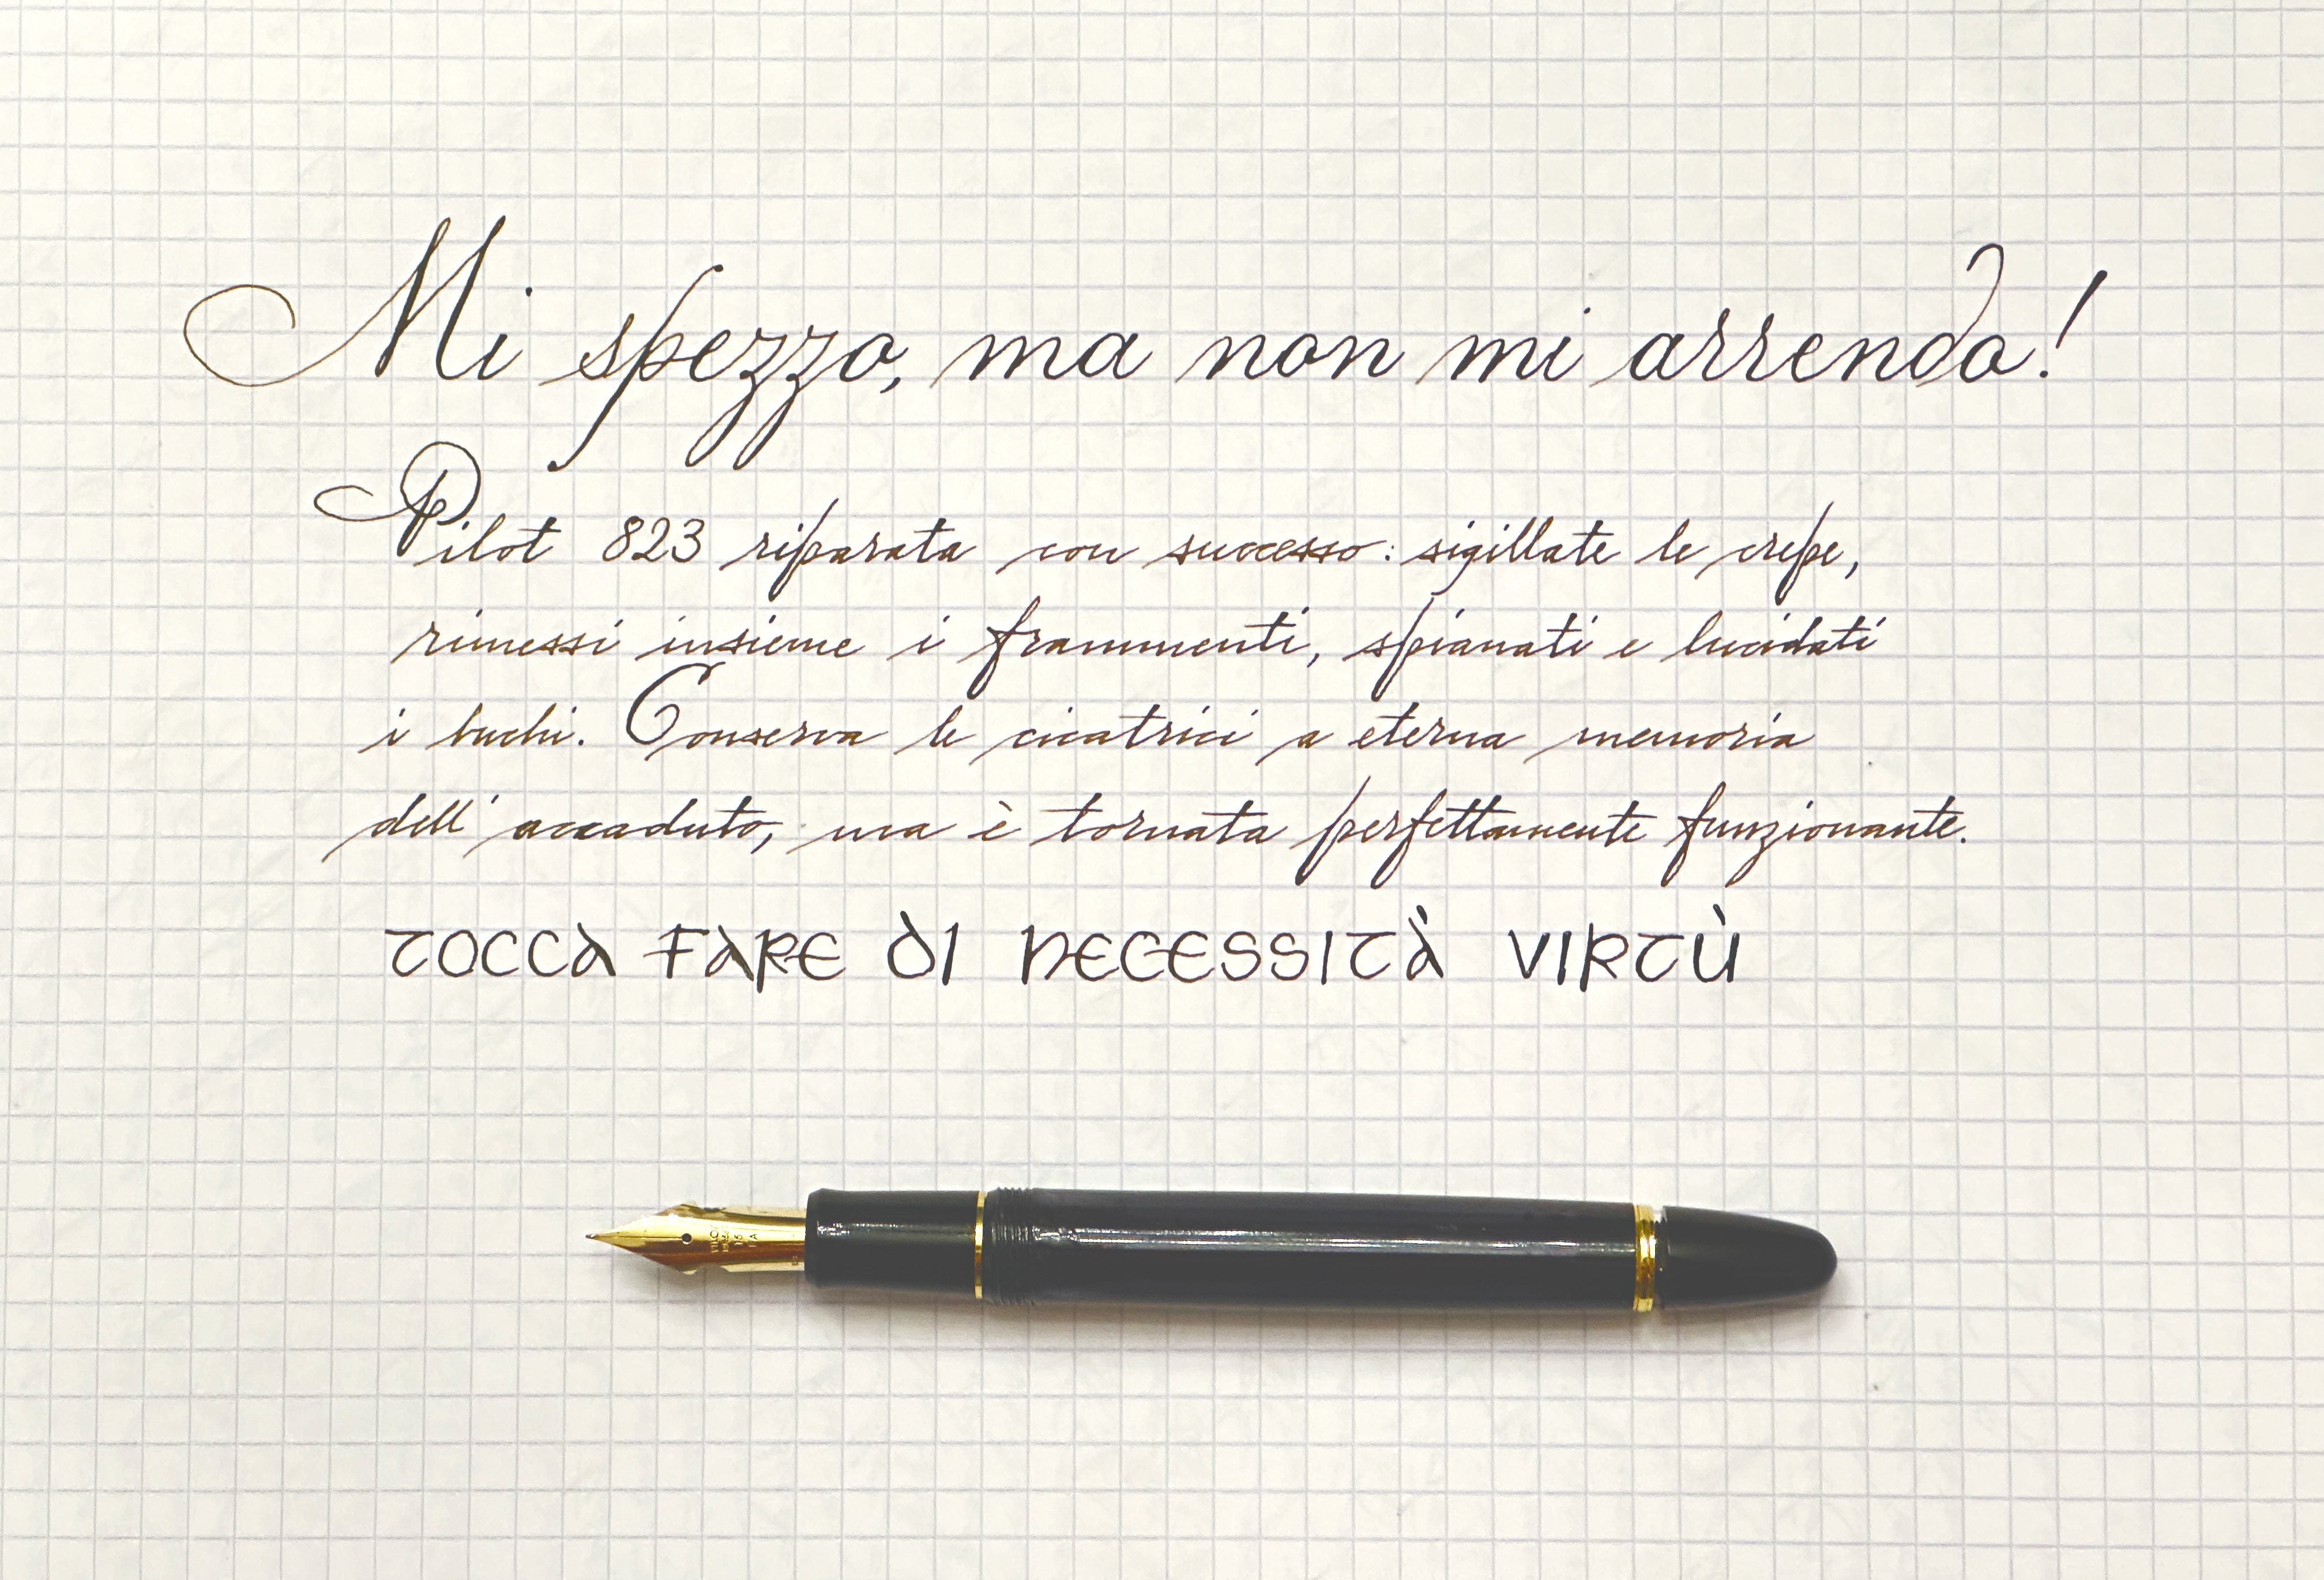 Mi spezzo, ma non mi arrendo!
Pilot 823 riparata con successo: sigillate le crepe,
rimessi insieme i frammenti, spianati e lucidati
i buchi. Conserva le cicatrici a eterna memoria
dell'accaduto, ma è tornata perfettamente funzionante.
TOCCA FARE DI NECESSITÀ VIRTÙ